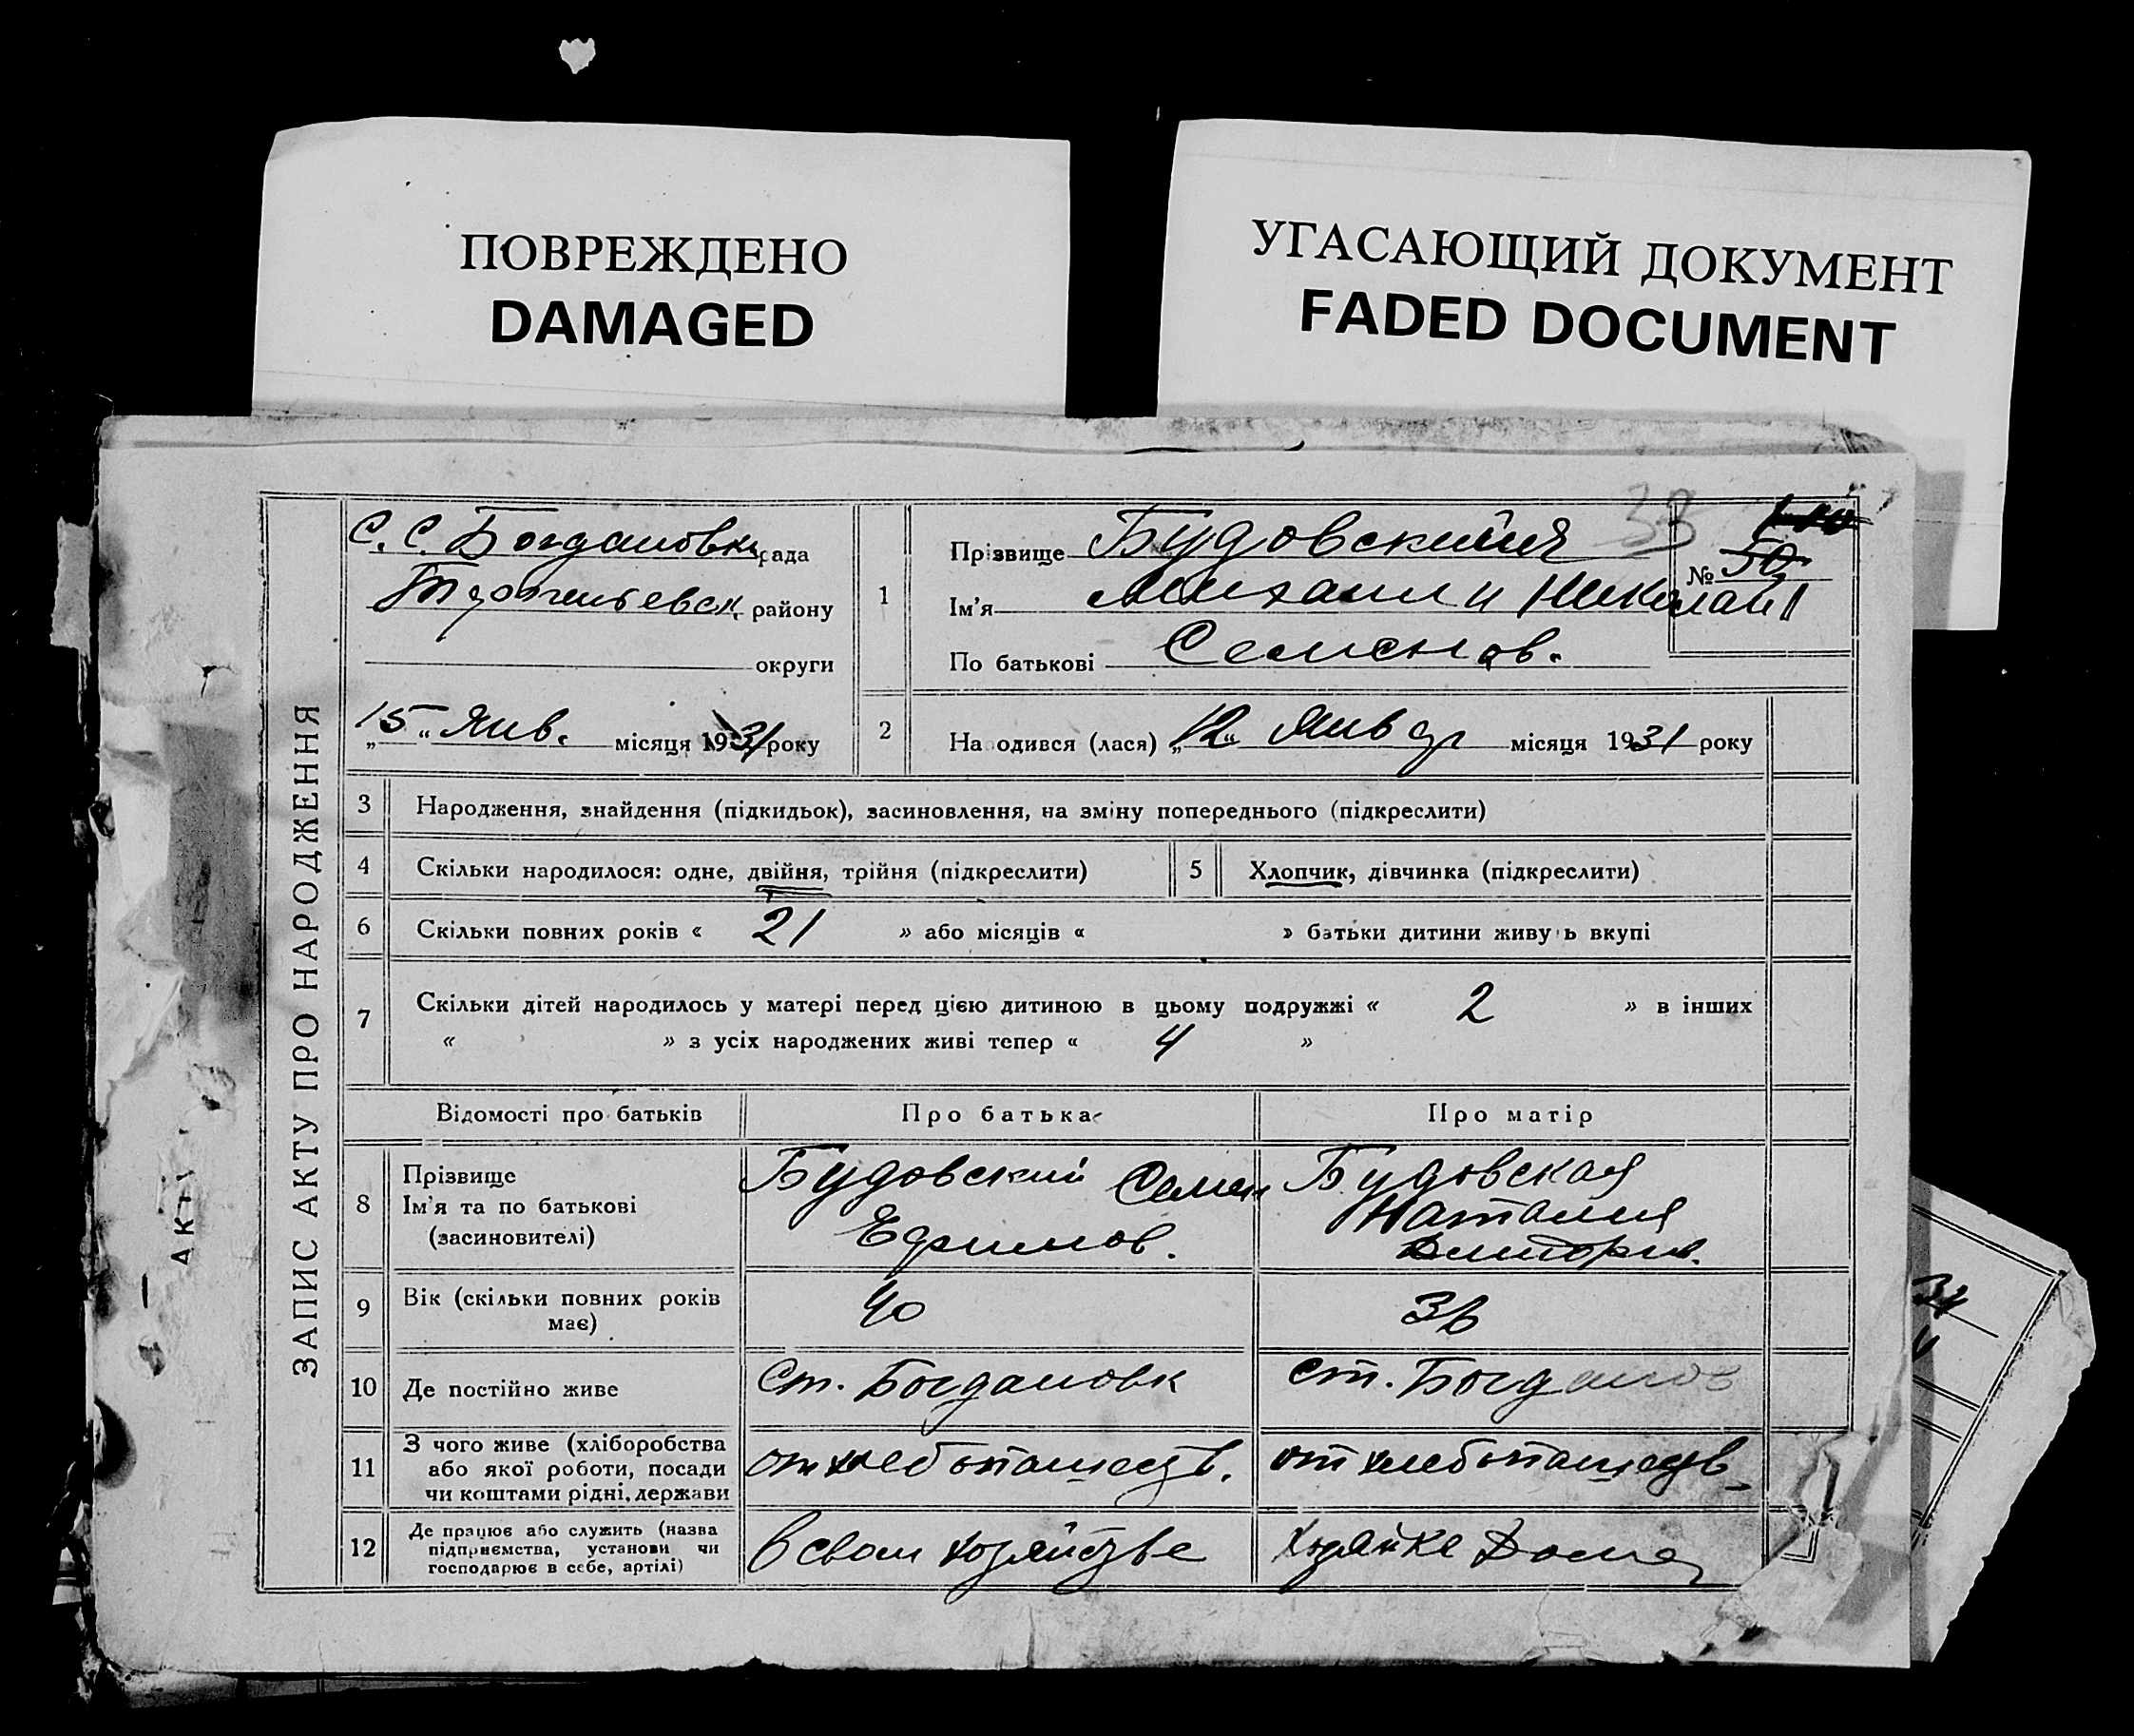 ПОВРЕЖДЕНО
DAMAGED
УГАСАЮЩИЙ ДОКУМЕНТ
FADED DOCUMENT
ЗАПИС АКТУ ПРО НАРОДЖЕННЯ
С. С. Богдановк рада
району
округи
„15“ Янв. місяця 1931 року
1
Прізвище
33
№ 50
Ім'я Михаил и Николай
По батькові Семенов.
2 На одився (лася) „12“ Январ місяця 1931 року
3 Народження, знайдення (підкидьок), засиновлення, на зміну попереднього (підкреслити)
4 Скільки народилося: одне, двійня, трійня (підкреслити) 5 Хлопчик, дівчинка (підкреслити)
6 Скільки повних років « 21 » або місяців « » батьки дитини живу ь вкупі
7 Скільки дітей народилось у матері перед цією дитиною в цьому подружжі « 2 » в інших
« » з усіх народжених живі тепер « 4 »
Відомості про батьків Про батька Про матір
8 Прізвище
Ім'я та по батькові
(засиновителі)
Будовский Семен
Ефимов.
Будовская
Наталия
9 Вік (скільки повних років
має)
40 36
10 Де постійно живе ст. Богдановк ст. Богданов
11 З чого живе (хліборобства
або якої роботи, посади
чи коштами рідні, держави
от хлебопашеств. от хлебопашеств
12 Де працює або служить (назва
підприємства, установи чи
господарює в себе, артілі)
В свом хозяйстве Хозяйке Дома
АКТ
34